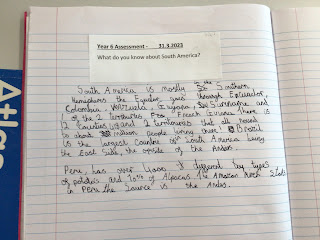 Year 6 Assessment - 31.3.2023
What do you know about South America?
South America is mostly in the Southern
Hemisphere the Equator goes through Ecuador,
Colombia, Guyana, Suriname and
1 of the 2 territories French Guiana. There is
12 Counties and 2 territories that all round
to about million people living there! Brazil
is the largest Countrie of South America being
the East Side, the opisite of the Andes.
Peru, has over 4000 different key types
of potatos and 70% of Alpacas. The Amazon River Starts
in Peru the Source is the Andes.
Atlas